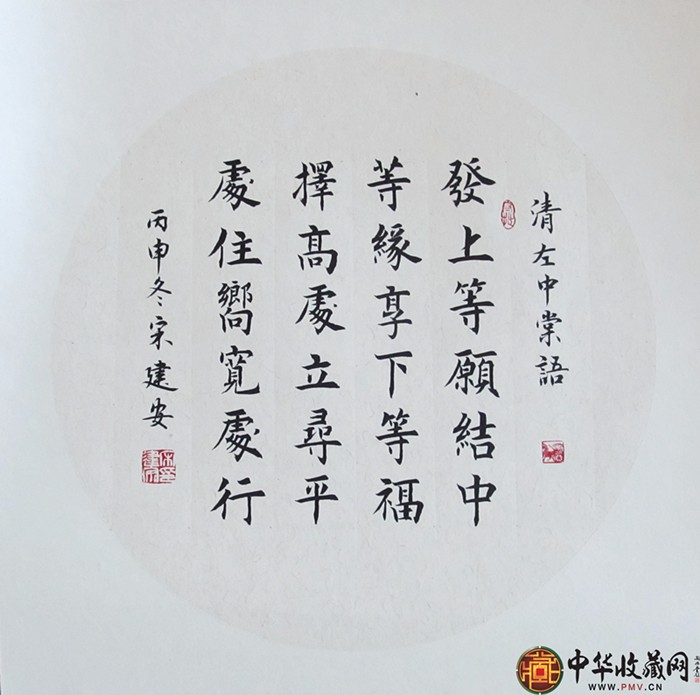 清左中棠語
發上等願結中
等緣享下等福
擇高處立尋平
處住嚮寬處行
丙申冬宋建安
中华收藏网
WWW.PMV.CN